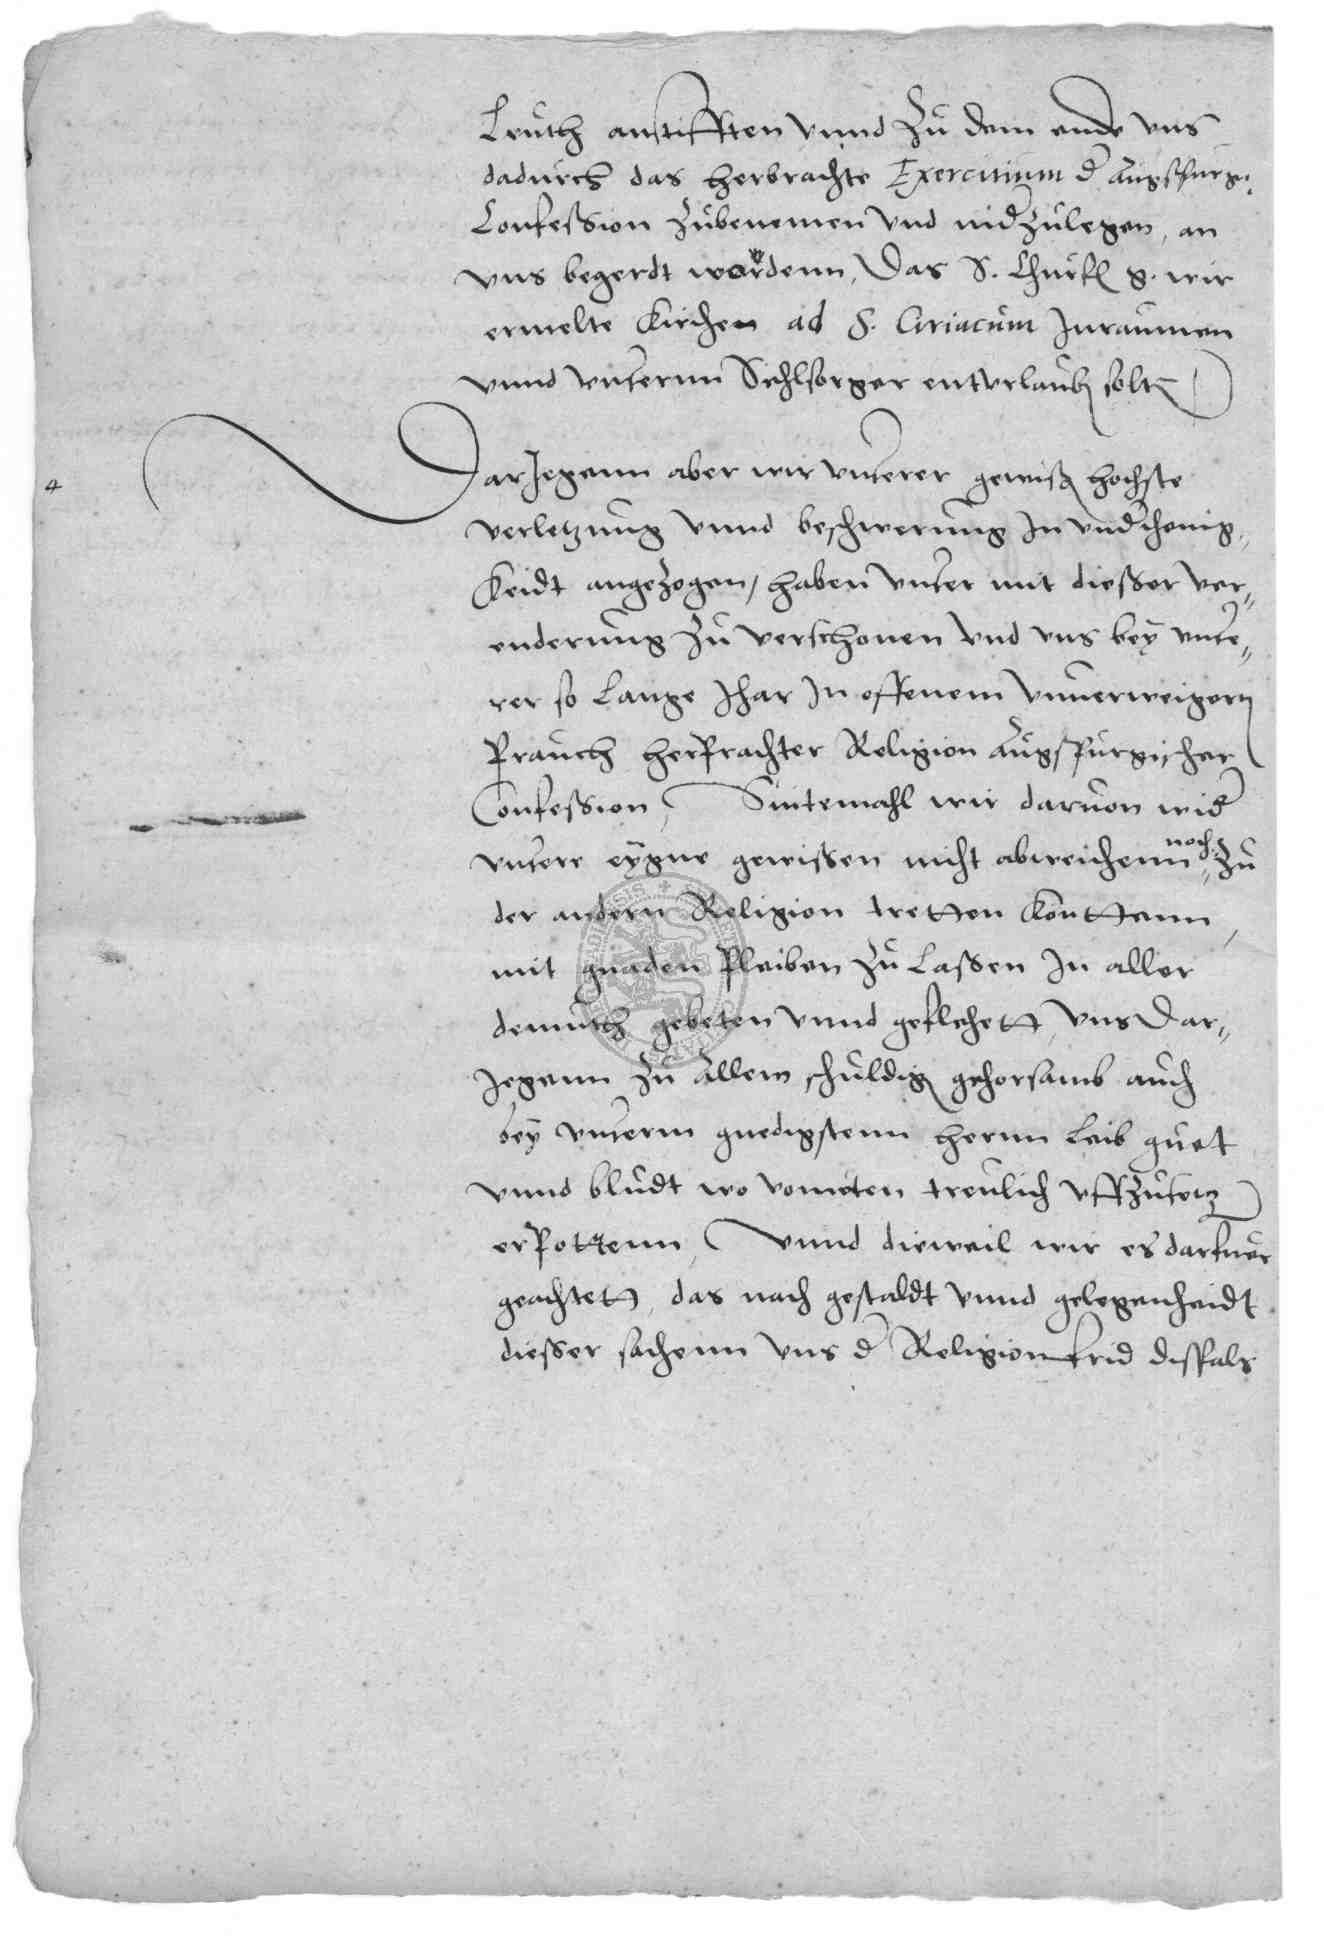 Leuth anstifften vnnd zu dem ende vns
dadurch das herbrachte Exercitium d Augspurg.
Confession zubenemen vnd nidzulegen, an
vns begerdt wordenn, Das S. Churfl g. wir
ermelte Kirchen ad S. Ciriacum Inraumen
vnnd vnsernn Sehlsorger entvrlaub solt
Darjegenn aber wir vnserer gewiß hochste
4
verletzung vnnd beschwerung In vndthenig-
Keidt angezogen, haben vnser mit diesser ver-
enderung zu verschonen vnd vns bey vnse-
rer so lange Jhar In offenem vnuerweigert
Prauch herprachter Religion Augspurgischer
Confession, Sintemahl wir daruon wid
vnsere eygne gewissen nicht abweichenn noch zu
der andern Religion tretten Konttenn,
mit gnaden Pleiben zu lassen In aller
demuth gebeten vnnd geflehett, vns Dar-
Jegenn zu allem schuldig gehorsamb auch
bey vnserm gnedigstenn hernn leib guet
vnnd bludt wo vonneten treulich vffzusetz
erpottenn, Vnnd dieweil wir es darfuer
geachtett, das nach gestaldt vnnd gelegenheidt
diesser sachenn vns d Religion frid dissfals